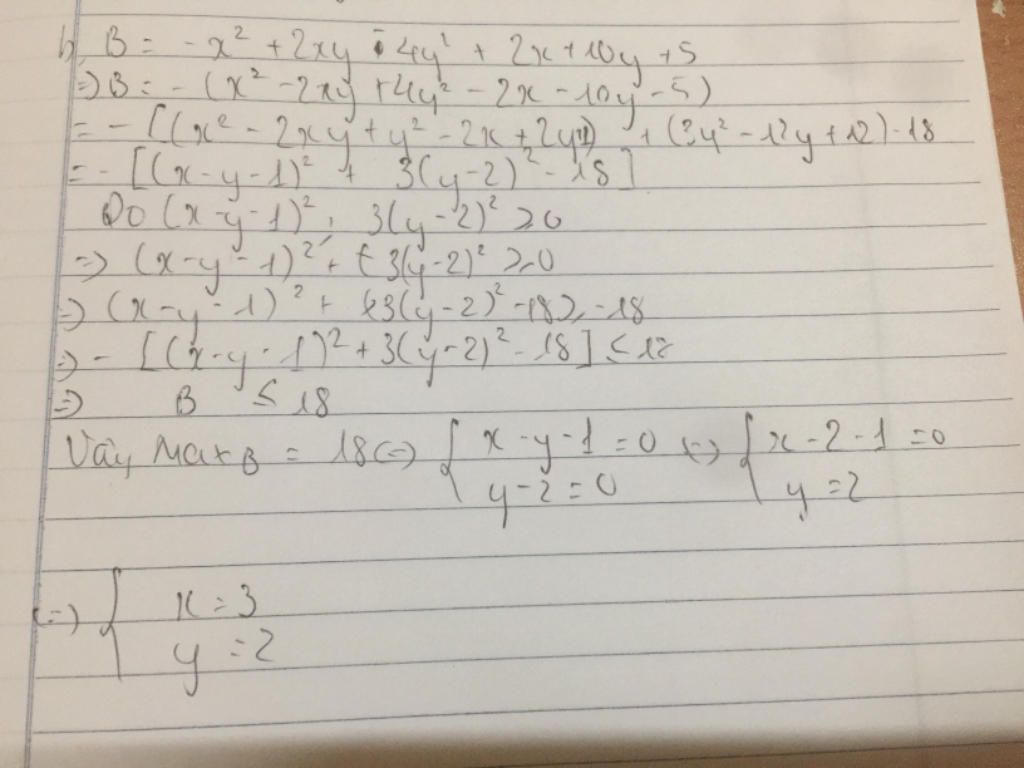 b, B = -x² + 2xy - 4y² + 2x + 10y + 5
=> B = - (x² - 2xy + 4y² - 2x - 10y - 5)
= - [(x² - 2xy + y² - 2x + 2y + 1) + (3y² - 12y + 12) - 18
= - [(x - y - 1)² + 3(y - 2)² - 18]
Do (x - y - 1)² ; 3(y - 2)² ≥ 0
=> (x - y - 1)² + 3(y - 2)² ≥ 0
=> (x - y - 1)² + 3(y - 2)² - 18 ≥ -18
=> - [(x - y - 1)² + 3(y - 2)² - 18] ≤ 18
=> B ≤ 18
Vậy Max B = 18 <=> { x - y - 1 = 0 <=> { x - 2 - 1 = 0
y - 2 = 0 y = 2
<=> { x = 3
y = 2